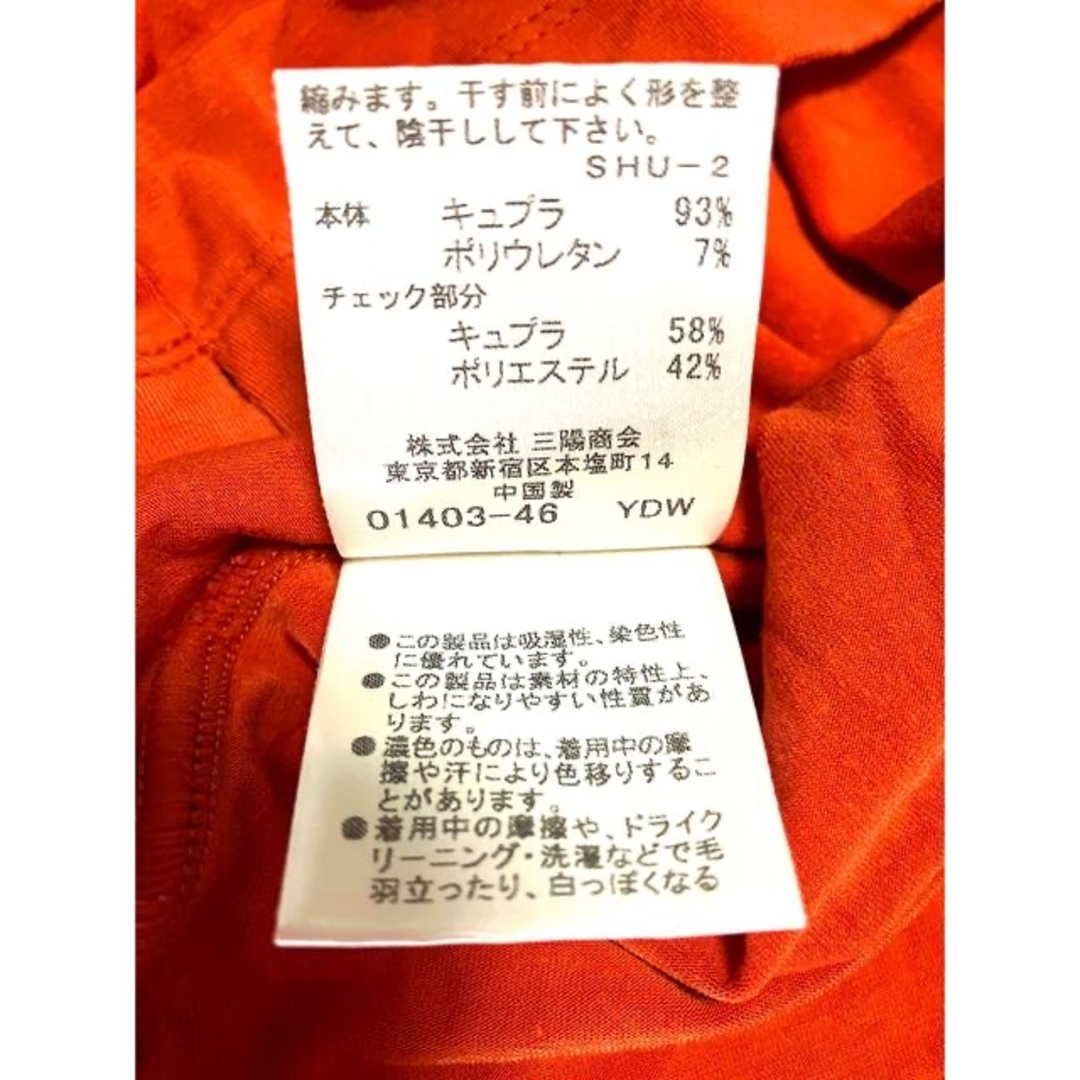 縮みます。干す前によく形を整
えて、陰干しして下さい。
SHU-2
本体 キュプラ 93%
ポリウレタン 7%
チェック部分
キュプラ 58%
ポリエステル 42%
株式会社 三陽商会
東京都新宿区本塩町14
中国製
01403-46 YDW
●この製品は吸湿性、染色性
に優れています。
●この製品は素材の特性上、
しわになりやすい性質があ
ります。
●濃色のものは、着用中の摩
擦や汗により色移りするこ
とがあります。
●着用中の摩擦や、ドライク
リーニング・洗濯などで毛
羽立ったり、白っぽくなる